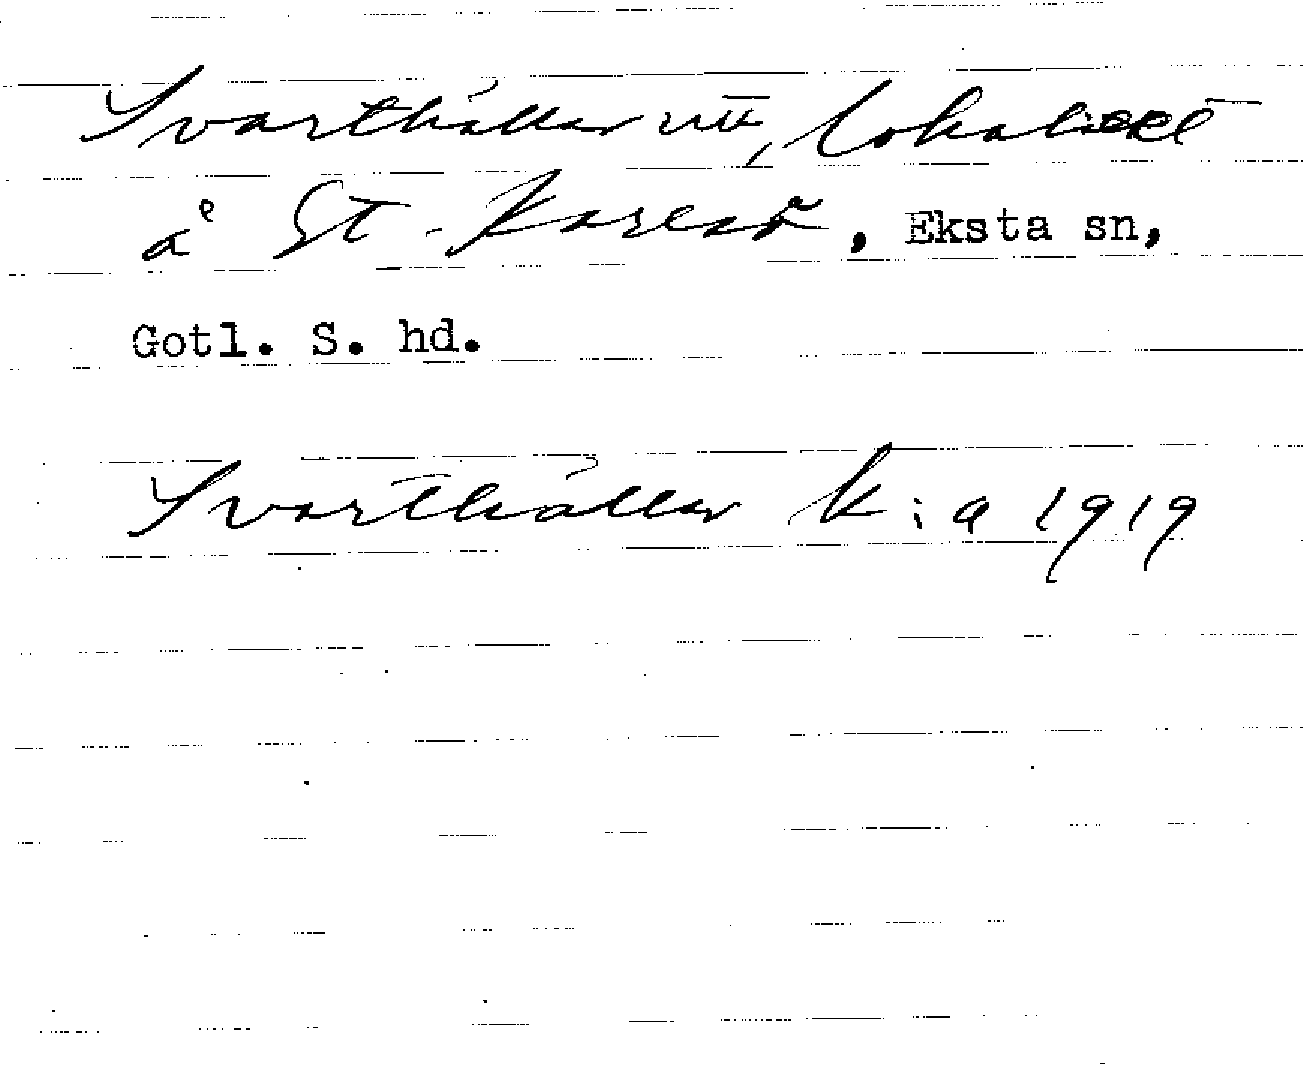 Svarthällar utt, lokalitet
å St. Karlsö, Eksta sn,
Gotl. S. hd.
Svarthällar k:a 1919